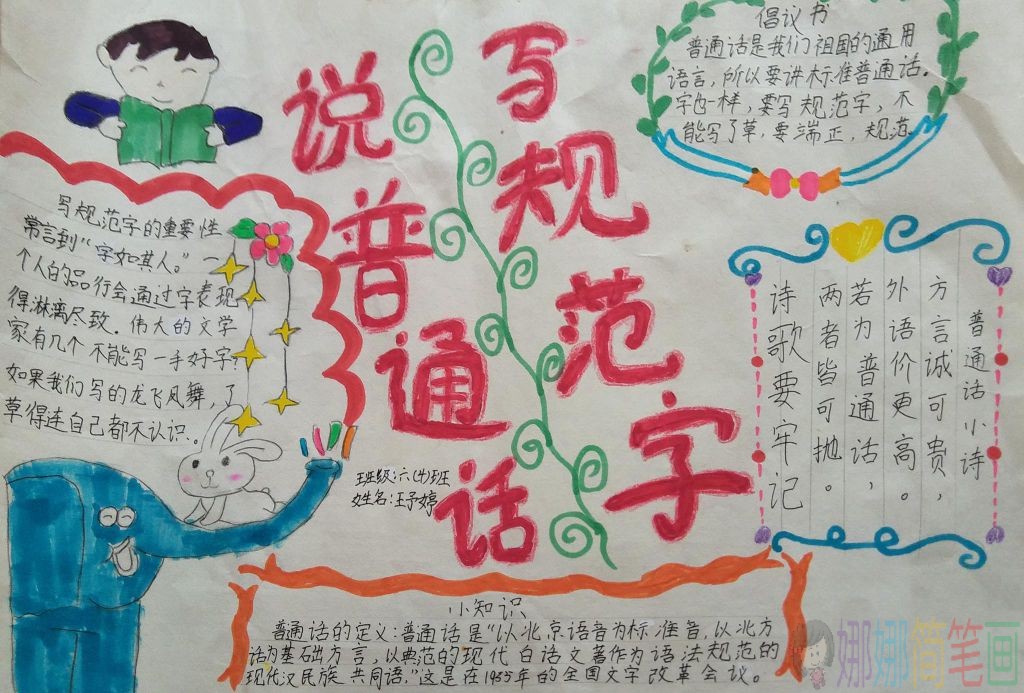 说普通话
写规范字
倡议书
普通话是我们祖国的通用
语言，所以要讲标准普通话。
字也一样，要写规范字，不
能写了草，要端正，规范
写规范字的重要性
常言到“字如其人。”一
个人的品行会通过字表现
得淋漓尽致．伟大的文学
家有几个不能写一手好字？
如果我们写的龙飞凤舞，了
草得连自己都不认识．。
普通话小诗
方言诚可贵，
外语价更高。
若为普通话，
两者皆可抛。
诗歌要牢记
班级：六（4）班
姓名：王予婷
小知识
普通话的定义：普通话是“以北京语音为标准音，以北方
话为基础方言，以典范的现代白话文著作为语法规范的
现代汉民族共同语，”这是在1955年的全国文字改革会议。
娜娜简笔画